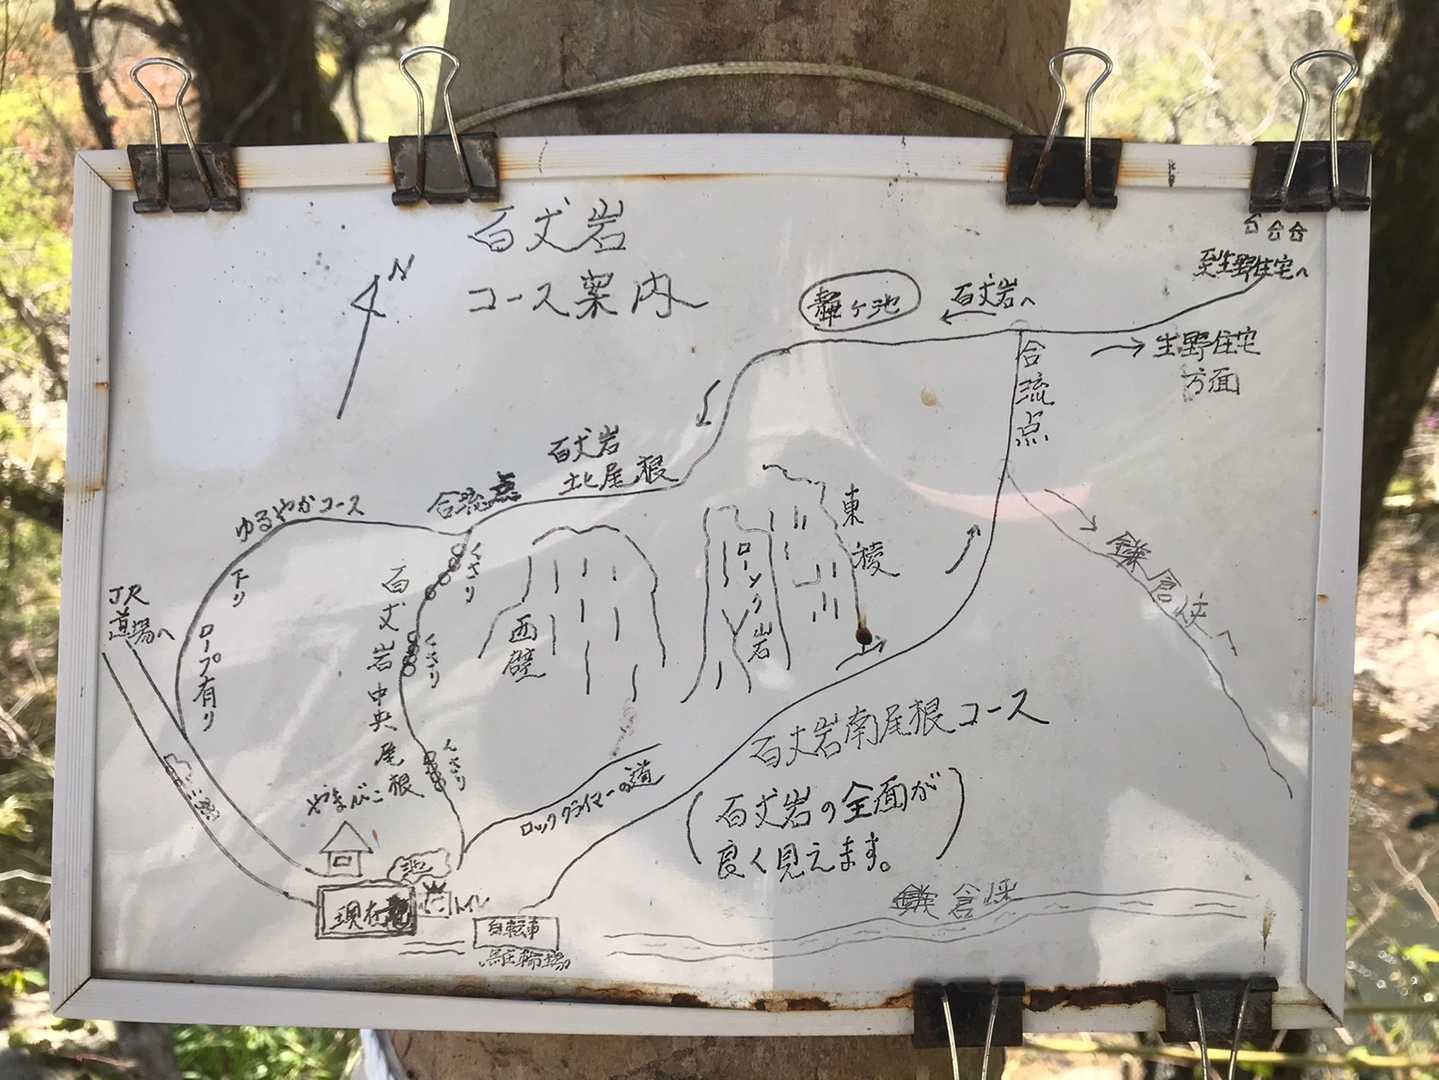 百丈岩
コース案内
N
至生野住宅へ
百丈岩へ
ケ池
生野住宅
方面
合流点
百丈岩
北尾根
合流点
ゆるやかコース
下り
ロープ有り
JR
道場へ
くさり
くさり
くさり
百丈岩中央尾根
西壁
ローソク岩
東稜
鎌倉峡へ
百丈岩南尾根コース
(百丈岩の全面が
良く見えます。)
ロッククライマーの道
やまびこ
池
現在地
自転車
駐輪場
鎌倉峡